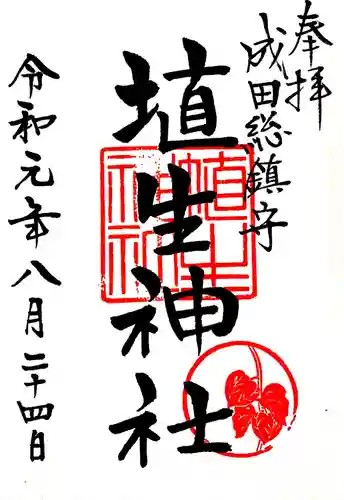 奉拝
成田総鎮守
埴生神社
令和元年八月二十四日